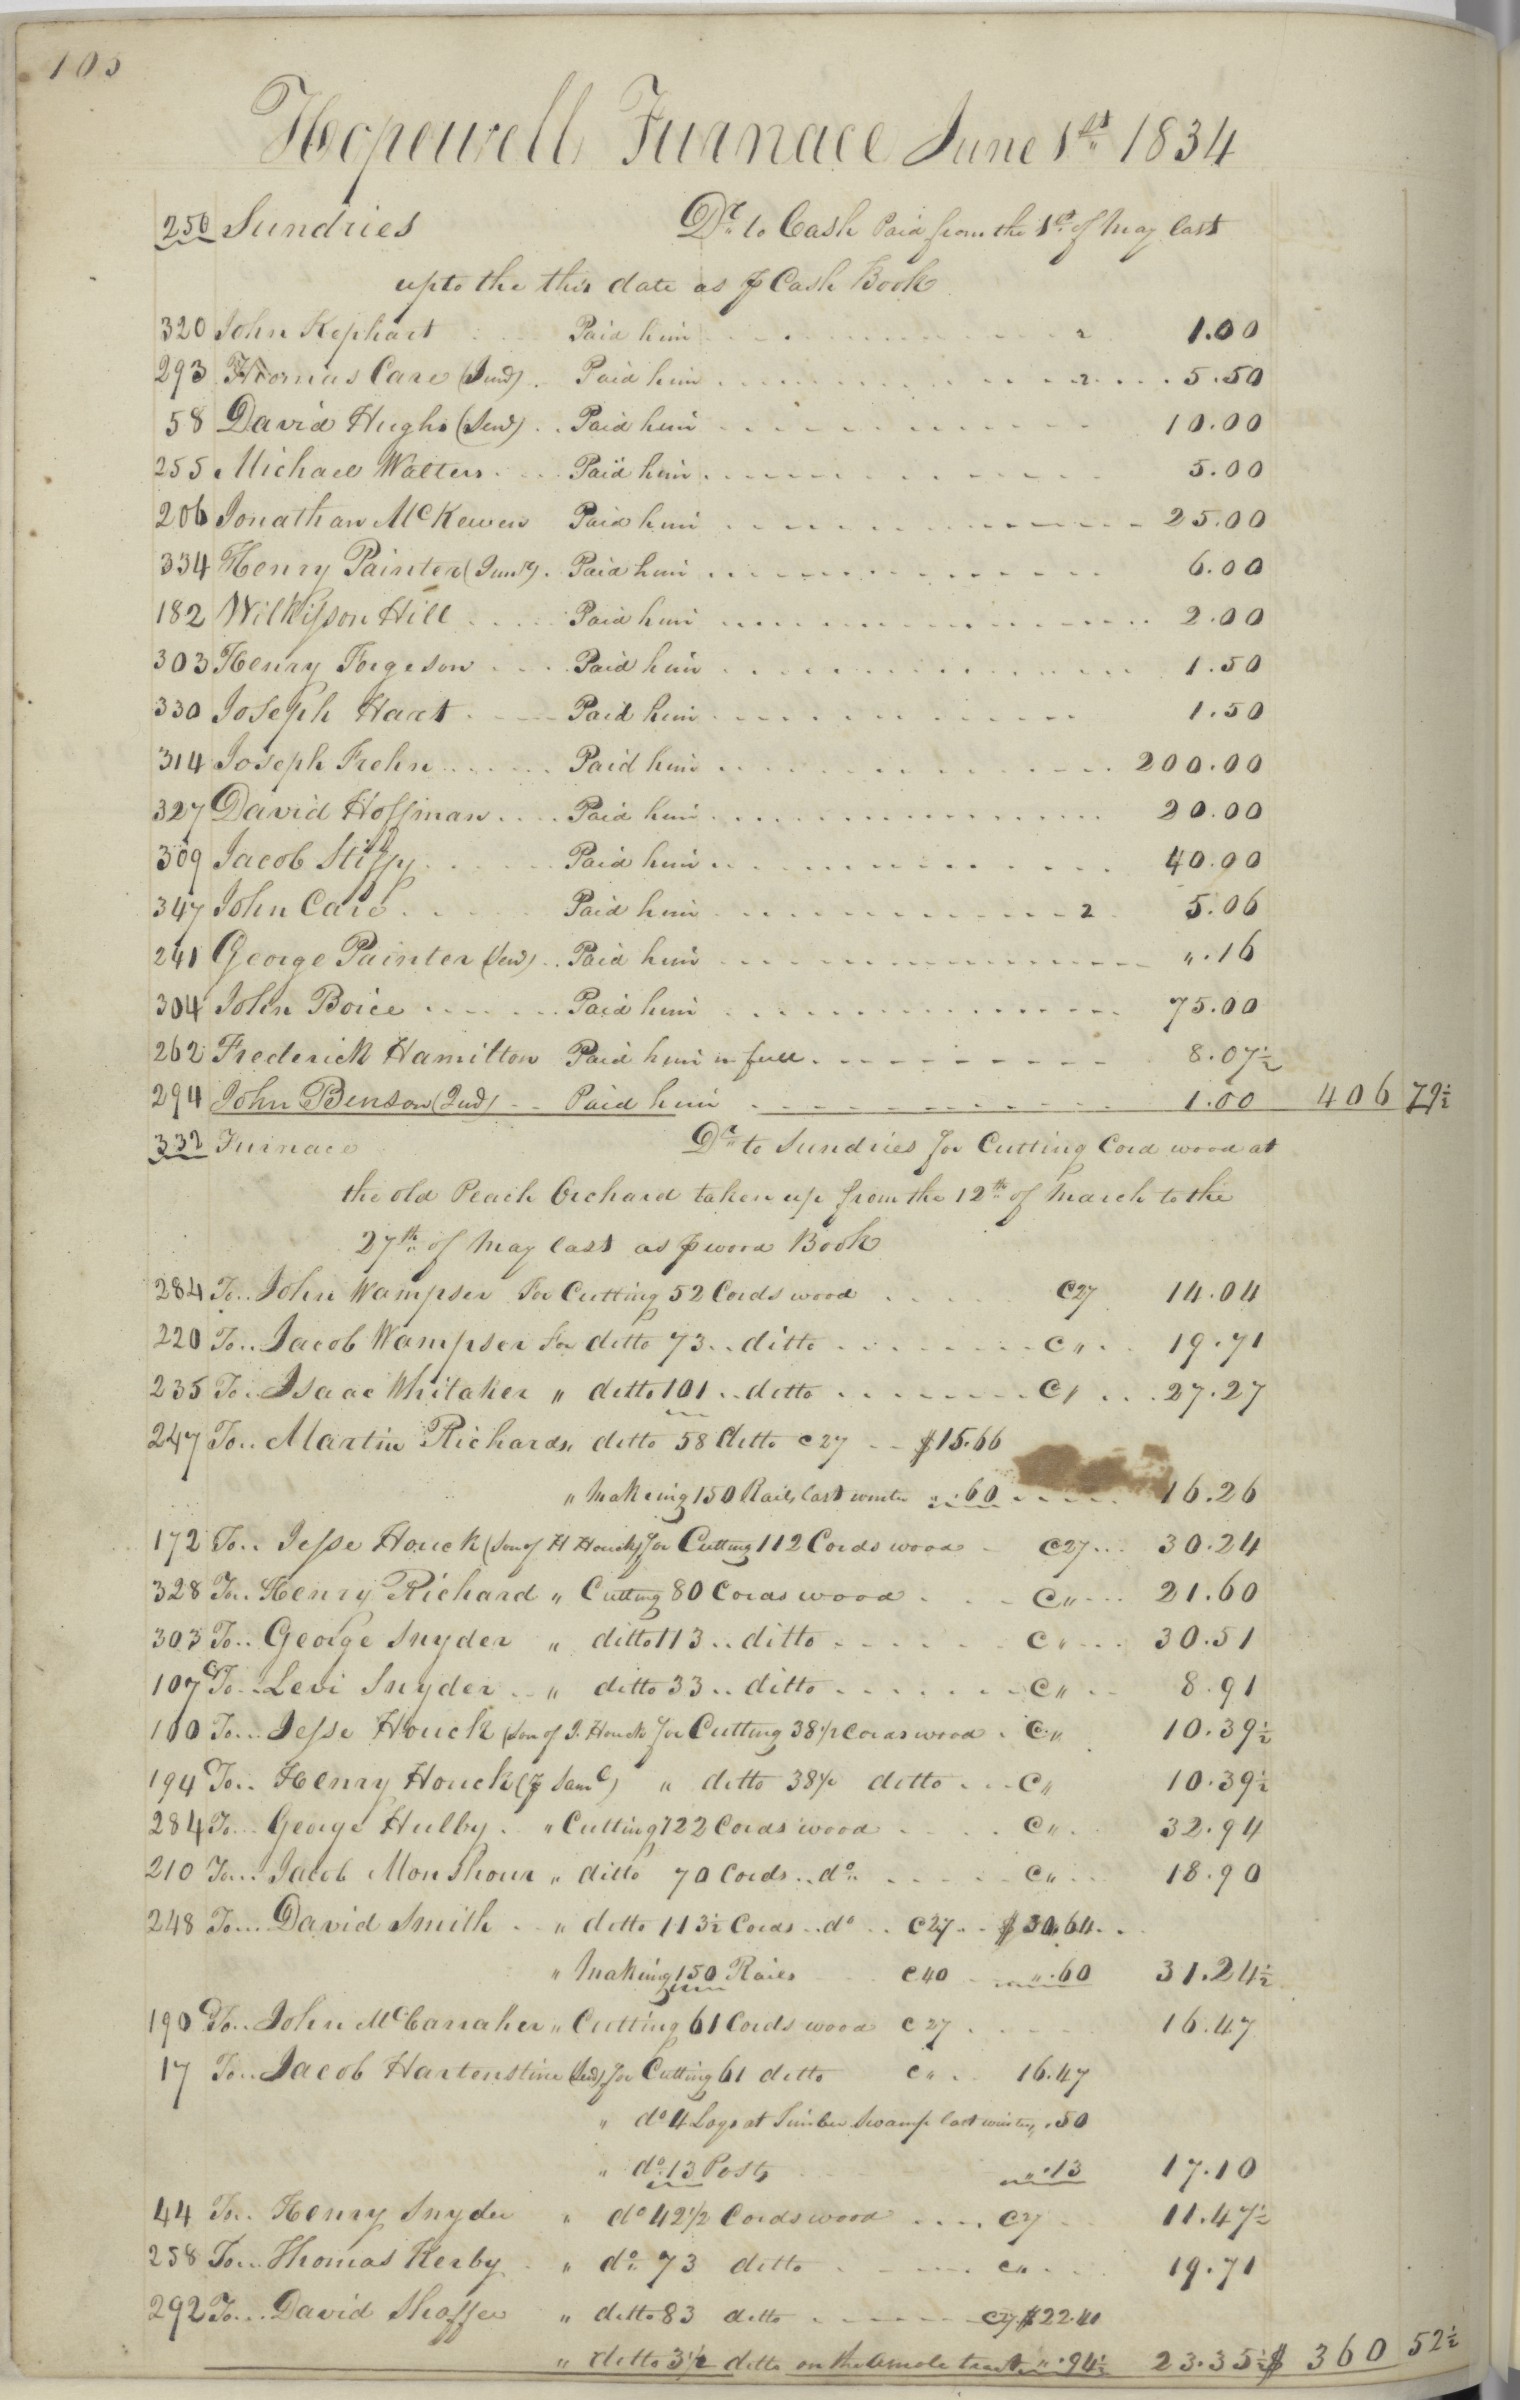 105
Hopewell Furnace June 1st 1834
250 Sundries Dr to Cash Paid from the 1st of May last
upto the this date as ⅌ Cash Book
320 John Kephart Paid him 2 1.00
293 Thomas Care (Jund) Paid him 2 5.50
58 David Hughs (Send) Paid him 10.00
255 Michael Walters Paid him 5.00
206 Jonathan McKewen Paid him 25.00
334 Henry Painter (Junr) Paid him 6.00
182 Wilkisson Hill Paid him 2.00
303 Henry Forgeson Paid him 1.50
330 Joseph Hart Paid him 1.50
314 Joseph Frehn Paid him 200.00
327 David Hoffman Paid him 20.00
309 Jacob Stiffy Paid him 40.00
347 John Care Paid him 2 5.06
241 George Painter (Send) Paid him ".16
304 John Boice Paid him 75.00
262 Frederick Hamilton Paid him in full 8.07½
294 John Benson (2nd) Paid him 1.00 406 79½
332 Furnace Dr to Sundries for Cutting Cord wood at
the old Peach Orchard taken up from the 12th of March to the
27th of May last as ⅌ wood Book
284 To.. John Wampser for Cutting 52 Cords wood C27 14.04
220 To.. Jacob Wampser for ditto 73.. ditto C " 19.71
235 To.. Isaac Whitaker " ditto 101.. ditto C " 27.27
247 To.. Martin Richards " ditto 58 ditto C27 $15.66
" Makeing 150 Rails last winter " .60 16.26
172 To.. Jesse Houck (Son of H Houck) for Cutting 112 Cords wood C27 30.24
328 To.. Henry Richard " Cutting 80 Cords wood C " 21.60
303 To.. George Snyder " ditto 113.. ditto C " 30.51
107 To.. Levi Snyder " ditto 33.. ditto C " 8.91
100 To.. Jesse Houck (Son of J. Houck for Cutting 38½ Cords wood C " 10.39½
194 To.. Henry Houck (⅌ Saml) " ditto 38½ ditto C " 10.39½
284 To.. George Hulby " Cutting 122 Cords wood C " 32.94
210 To.. Jacob Monshour " ditto 70 Cords.. do C " 18.90
248 To.. David Smith " ditto 113½ Cords.. do C27 $30.64
" Making 150 Rails C40 ".60 31.24½
190 To.. John McCarraher " Cutting 61 Cords wood C27 16.47
17 To.. Jacob Hartonstine (Send) for Cutting 61 ditto C " 16.47
" do 4 Logs at Timber Swamp last winter " .50
" do 13 Posts ".13 17.10
44 To.. Henry Snyder " do 42½ Cords wood C27 11.47½
258 To.. Thomas Kerby " do 73 ditto C " 19.71
292 To.. David Shaffer " ditto 83 ditto C27 $22.41
" ditto 3½ ditto on the tract " .94½ 23.35½ $ 360 52½